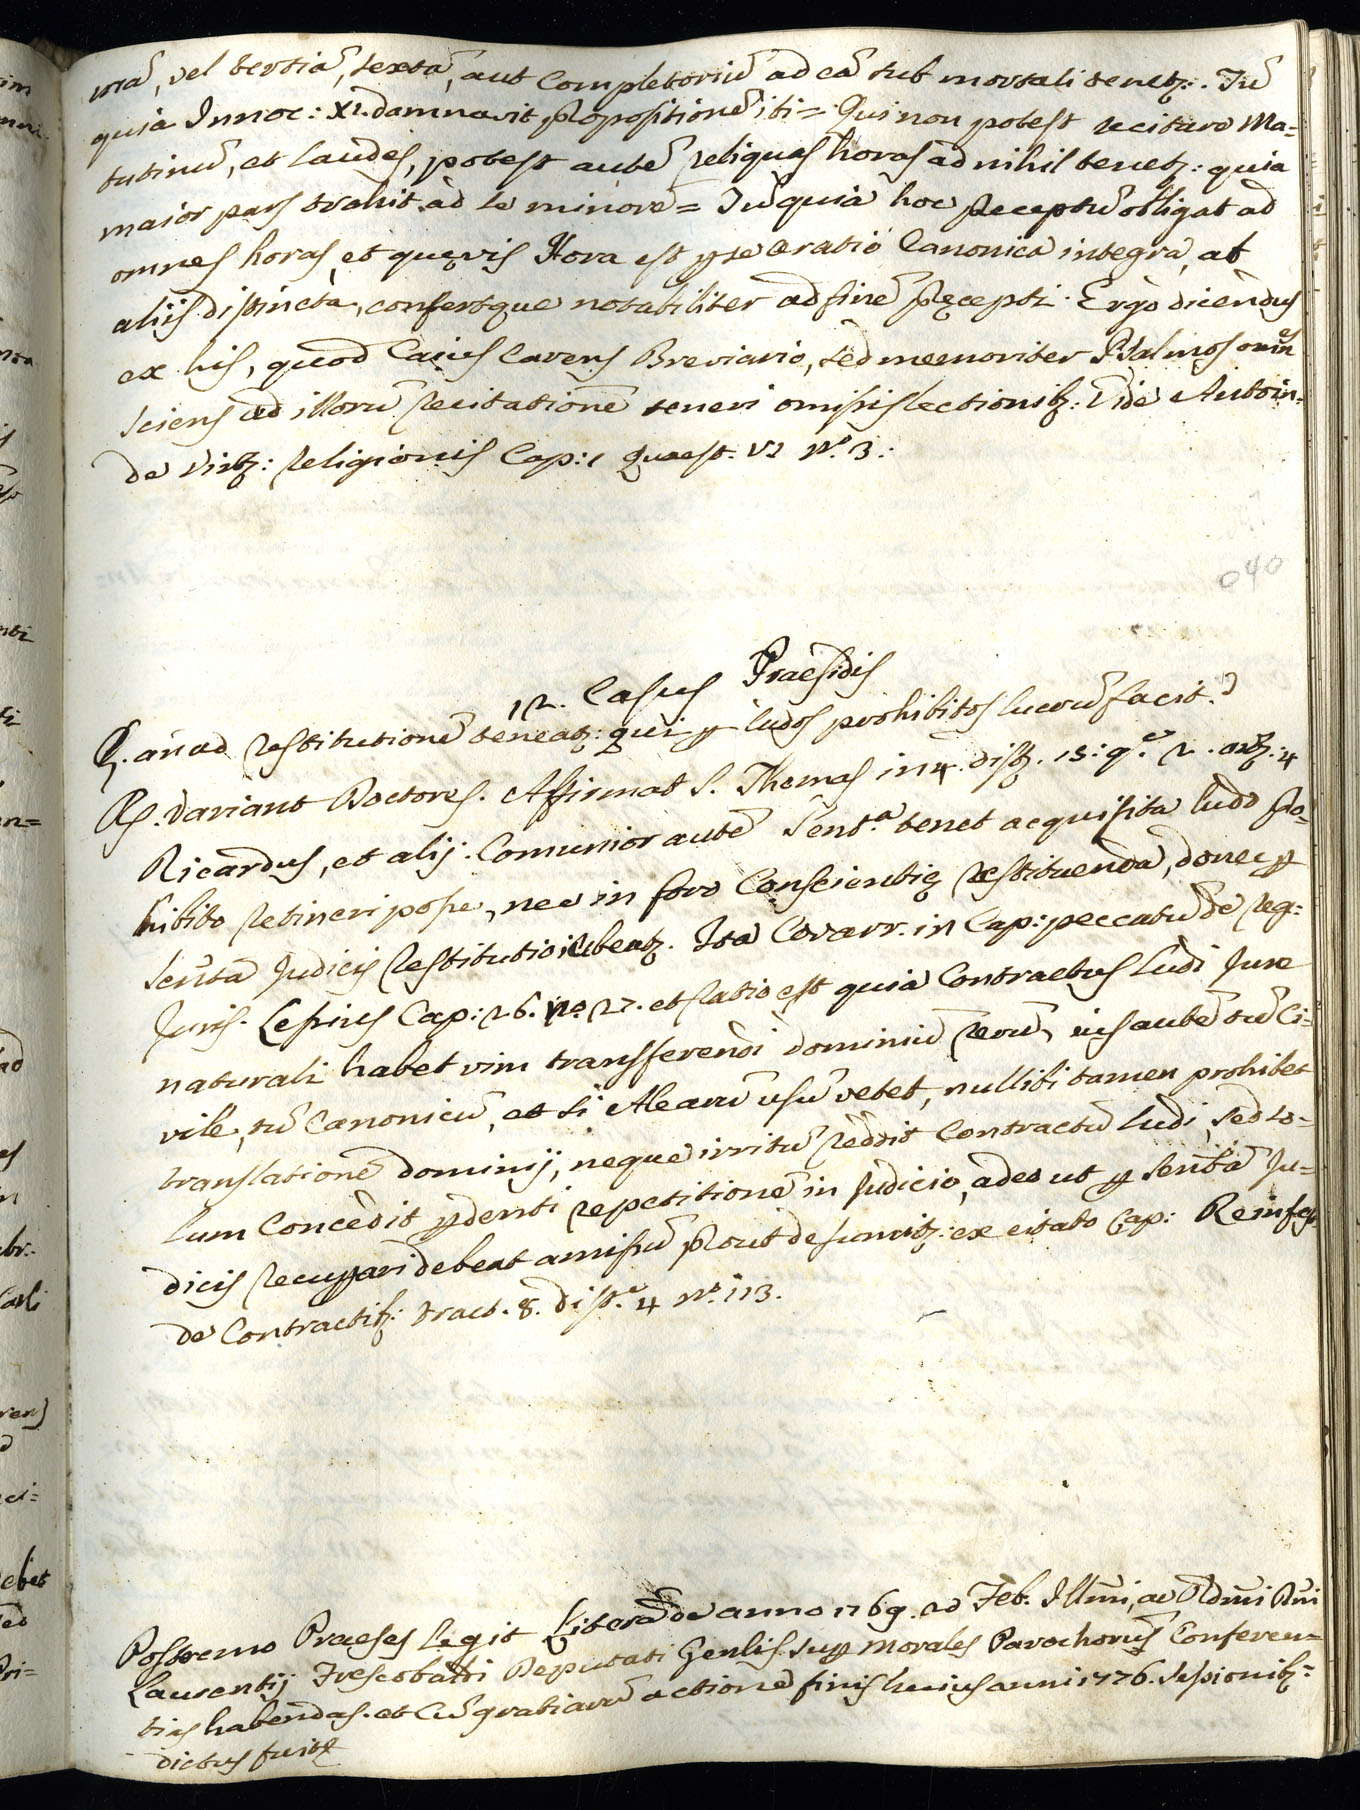 vel tertiã, sextã, aut Completoriũ ad eã sub mortali tenetz:. Tũ
quia Innoc: XI. damnavit propositionẽ iti= Qui non potest recitare Ma=
tutinũ, et Laudes, potest autẽ reliquas horas ad nihil tenetz: quia
maior pars trahit ad se minorẽ = Tũ quia hoc preceptũ obligat ad
omnes horas, et quęvis Hora est per se oratio Canonica integra, ab
aliis distincta, confertque notabiliter ad finẽ pręcepti. Ergo dicendus
ex his, quod Caius Carens Breviario, sed memoriter Psalmos omnes
sciens ad illorũ recitationẽ teneri omissis lectionibz: Vide Antoin.
de virtz: religionis Cap: 1 Quaest. VI Nº. 3.
040
12. Casus Praesidis
Q. an ad restitutionẽ teneatz: qui per ludos prohibitos lucrũ facit?
Rs. Variant Doctores. Affirmat S. Thomas in 4. distz. 15: q.e 2. artz: 4
Ricardus, et alij. Comunior autẽ Sent.a tenet acquisita ludo pro=
hibito retineri posse, nec in foro Conscientię restituenda, donec per
sentã Judicis restitutio iubeatz. Ita Covarr. in Cap: peccatũ de reg:
Juris. Lesius Cap: 26. nº. 27. et ratio est quia Contractus Ludi Jure
naturali habet vim transferendi dominiũ rerũ, ius autẽ tũ Ci=
vile, tũ Canonicũ, et si Alearũ usũ vetet, nullibi tamen prohibet
translationẽ dominij, neque irritũ reddit Contractũ Ludi, sed so=
lum Concedit perdenti repetitionẽ in Judicio, adeo ut per sentã Ju=
dicis recuperari debeat amissũ prout desumitz: ex citato Cap: Reinfes.
de Contractibz: tract. 8. dist.e 4 Nº. 113.
Postremo Praeses legit Literã de anno 1769. 20 Feb. Illm̃i, ac Rdm̃i Dñi
Laurentij Frescobaldi Deputati Genlis super Morales Parochorũ Conferen=
tias habendas. et Cũ gratiarũ actione finis huius anni 1776. Sessionibz=
dictus fuit